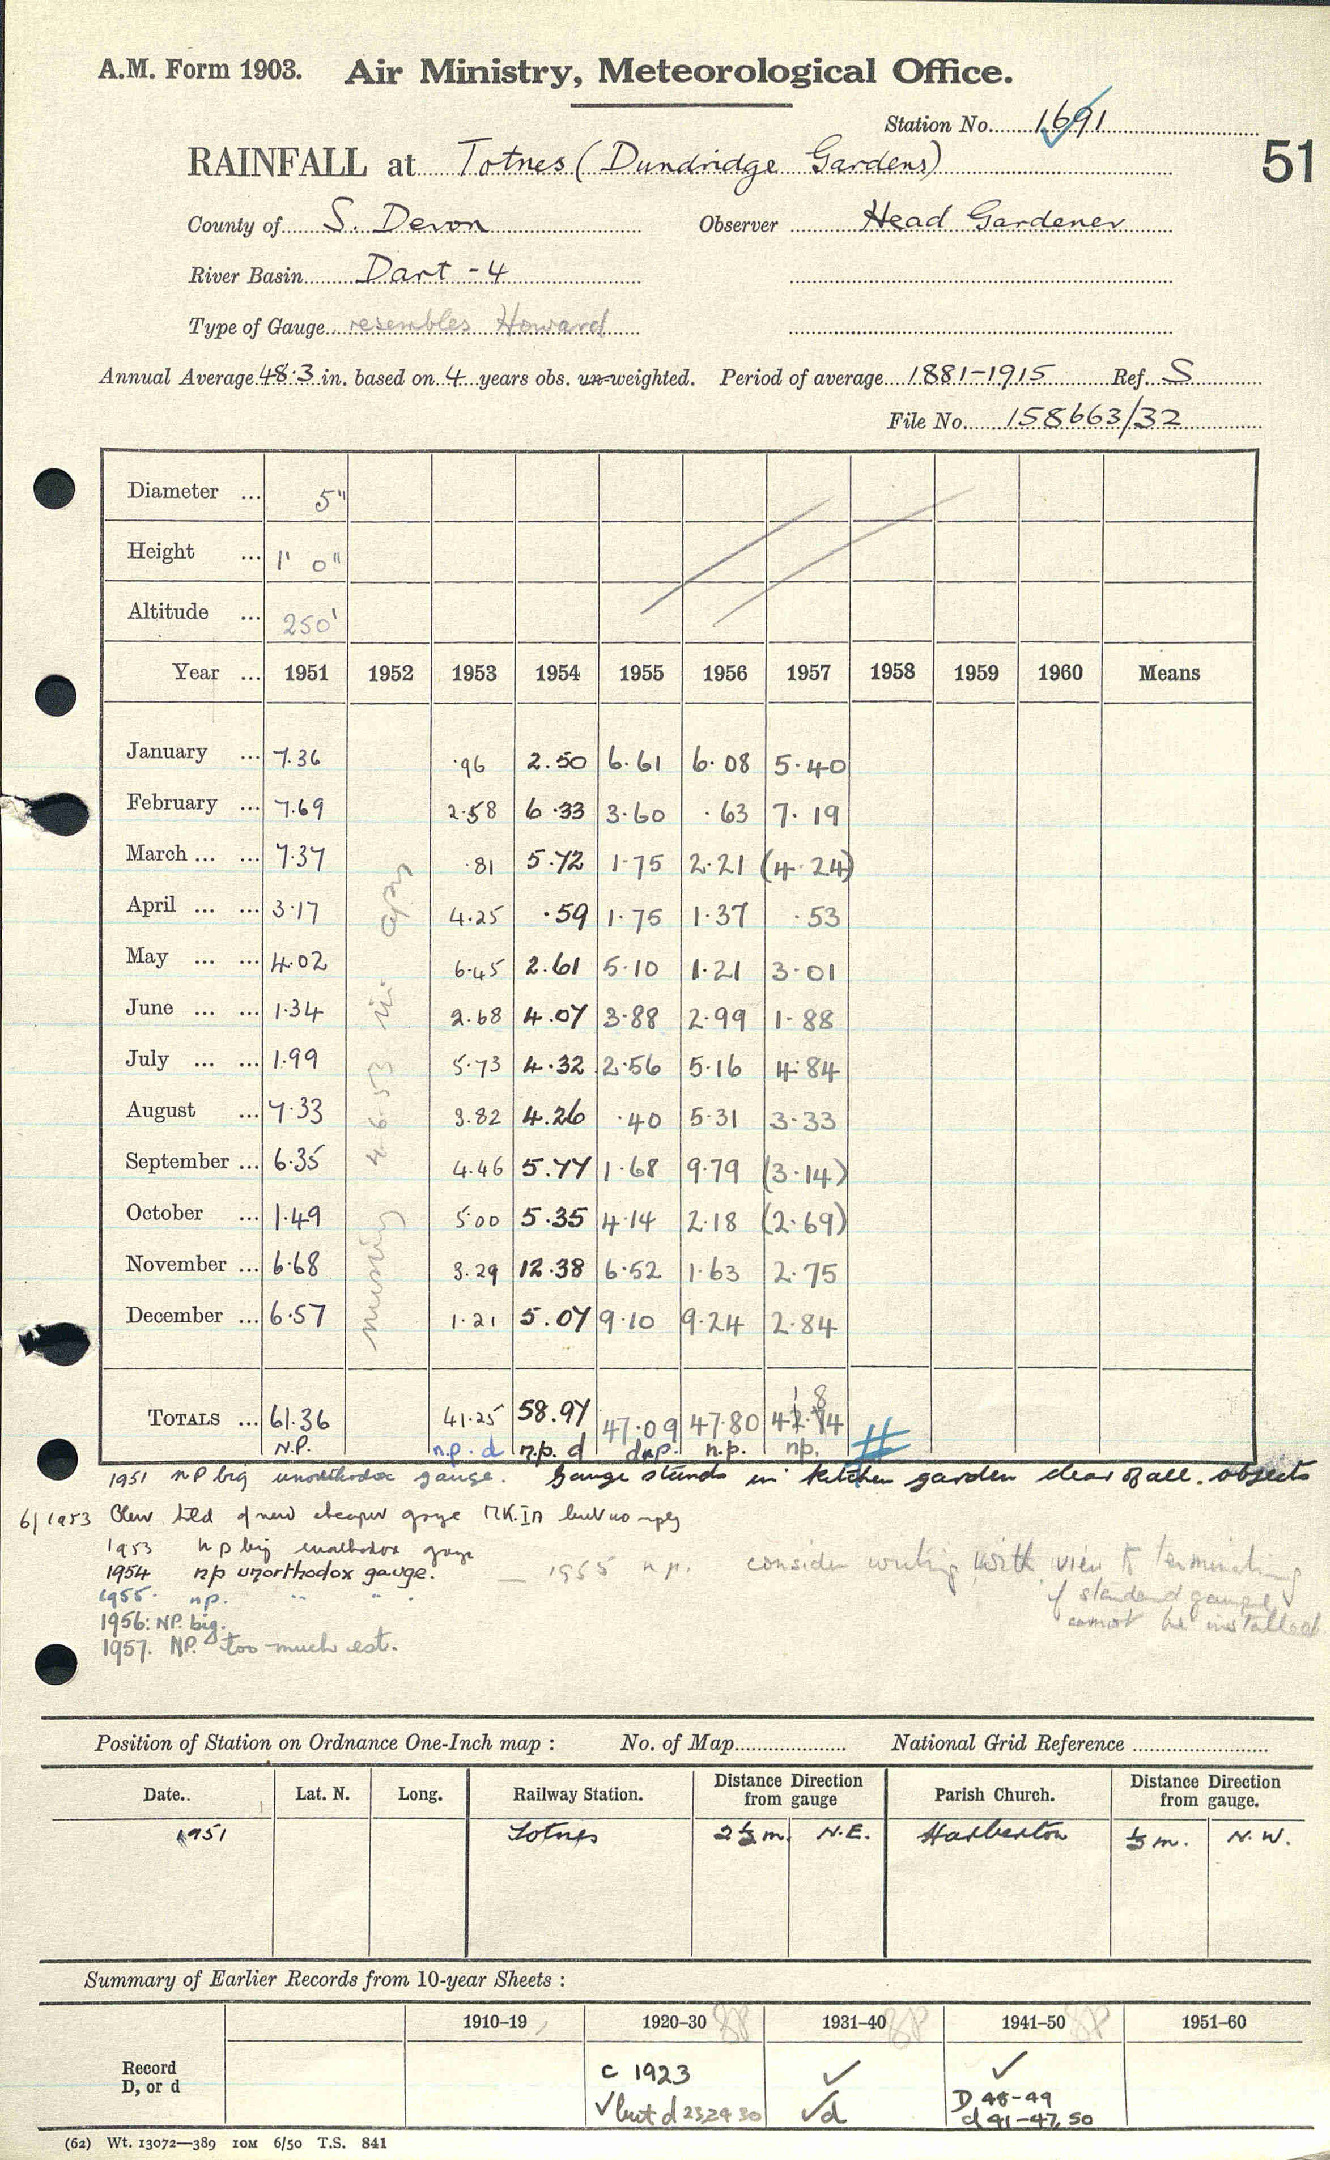 A.M. Form 1903. Air Ministry, Meteorological Office.
Station No. 1691
51
RAINFALL at Totnes (Dundridge Gardens)
County of S. Devon Observer Head Gardener
River Basin Dart - 4
Type of Gauge resembles Howard
Annual Average 48.3 in. based on 4 years obs. un-weighted. Period of average 1881-1915 Ref. S
File No. 158663/32
Diameter ... 5"
Height ... 1' 0"
Altitude ... 250'
Year ... 1951 1952 1953 1954 1955 1956 1957 1958 1959 1960 Means
January ... 7.36 .96 2.50 6.61 6.08 5.40
February ... 7.69 2.58 6.33 3.60 .63 7.19
March ... ... 7.37 .81 5.72 1.75 2.21 (4.24)
April ... ... 3.17 4.25 .59 1.75 1.37 .53
May ... ... 4.02 6.45 2.61 5.10 1.21 3.01
June ... ... 1.34 2.68 4.07 3.88 2.99 1.88
July ... ... 1.99 5.73 4.32 2.56 5.16 4.84
August ... 7.33 3.82 4.26 .40 5.31 3.33
September ... 6.35 4.46 5.77 1.68 9.79 (3.14)
October ... 1.49 5.00 5.35 4.14 2.18 (2.69)
November ... 6.68 3.29 12.38 6.52 1.63 2.75
December ... 6.57 1.21 5.07 9.10 9.24 2.84
missing 4.6.53 in
TOTALS ... 61.36 41.25 58.97 47.09 47.80 41.84
N.P. n.p. d n.p. d d n.p. n.p. n.p. #
1951 n P big unorthodox gauge. Gauge stands in kitchen garden clear of all objects
6/1953 Obsr told of new cheaper gauge MK.IA but no reply
1953 n p big unorthodox gauge
1954 n/p unorthodox gauge. — 1955 n.p. consider writing with view to terminating
1955. np. " " . if standard gauge
1956: NP. big. cannot be installed
1957. NP. too much est.
Position of Station on Ordnance One-Inch map : No. of Map National Grid Reference
Date.. Lat. N. Long. Railway Station. Distance Direction from gauge Parish Church. Distance Direction from gauge.
1951 Totnes 2½ m. N.E. Harberton ½ m. N.W.
Summary of Earlier Records from 10-year Sheets :
1910-19 1920-30 1931-40 1941-50 1951-60
Record c 1923 ✓ ✓
D, or d ✓ but d 23,29 30 ✓d D 48-49
d 41-47, 50
(62) Wt. 13072—389 10M 6/50 T.S. 841